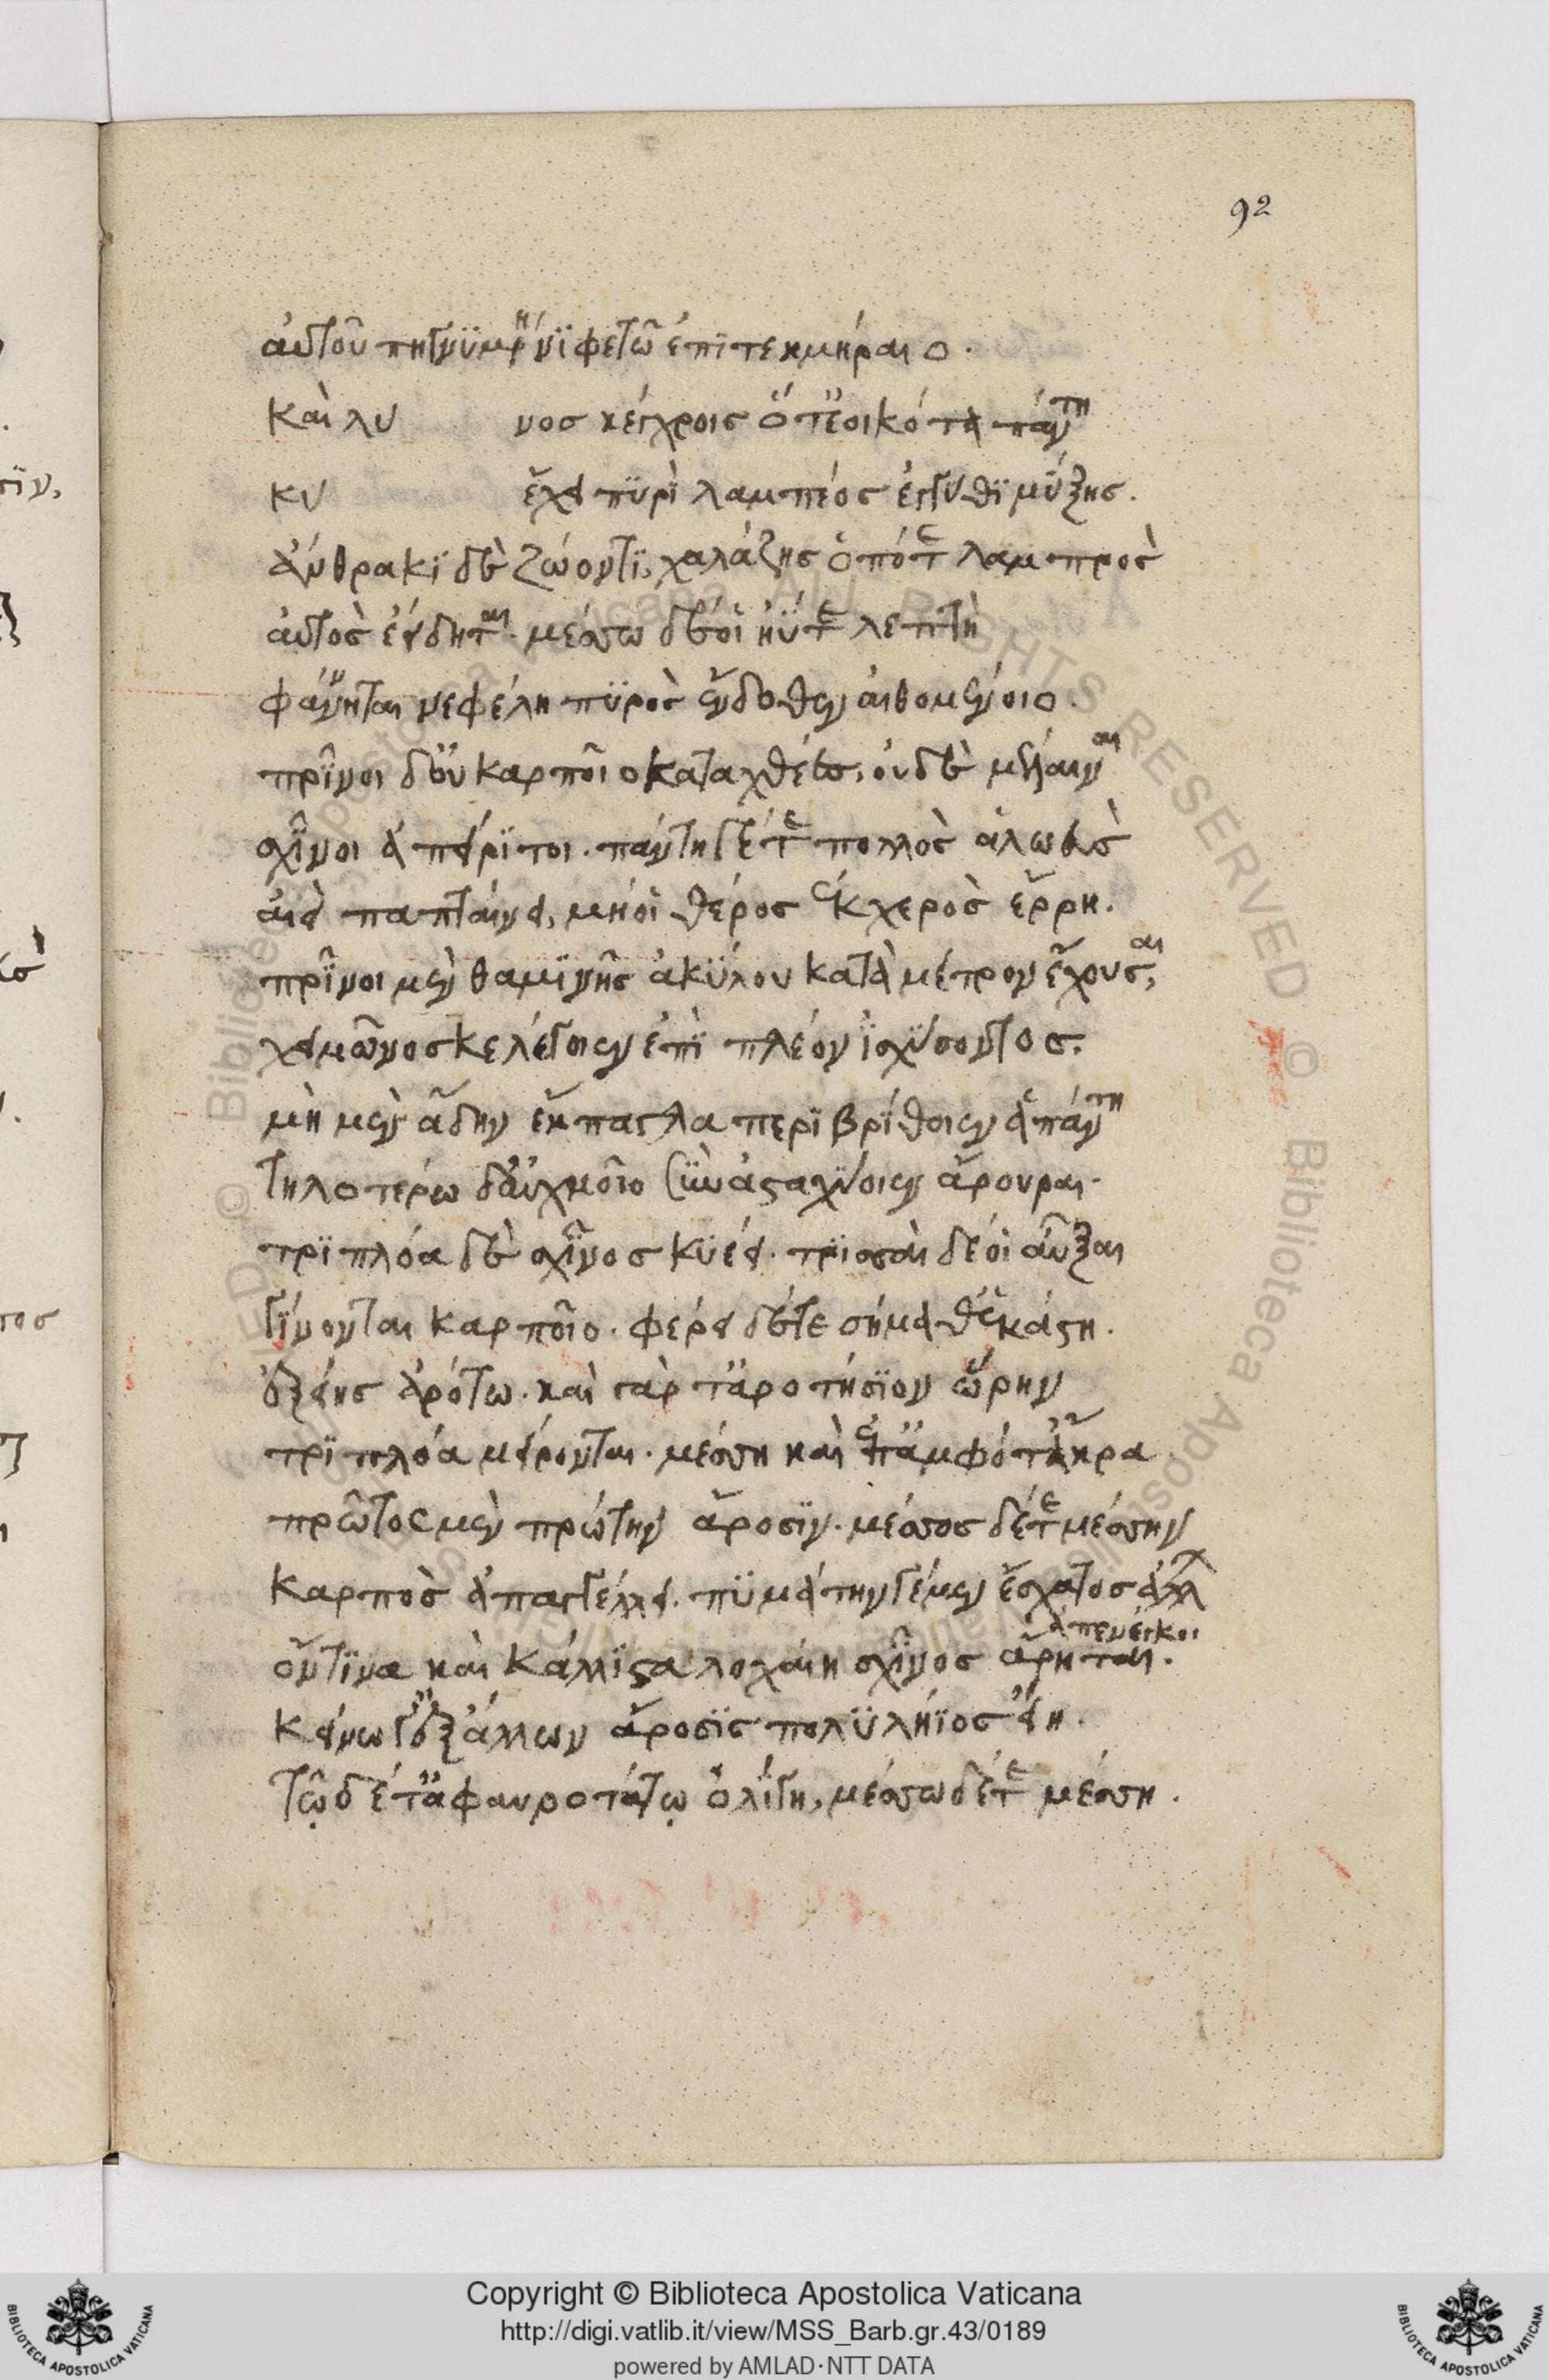 92
αὐτοῦ πη γῆν ὑμὴν νιφετῶ ἐπιτεκμήραιο.
Καὶ λυ νος κέγχροις ὅτ' ἐοικότα πάντη
κυ ἔχει πυρὶ λαμπέος ἐγγύθι μύξης.
ἄνθρακι δὲ ζώοντι, χαλάζης ὁπότε λαμπρὸς
αὐτὸς ἐείδηται. μέσσω δέ οἱ ἠΰτε λεπτὴ
φαίνηται νεφέλη πυρὸς ἔνδοθεν αἰθομένοιο.
πρῖνοι δ' οὖ καρποῖο καταχθέες, οὐδὲ μέλαιναι
σχῖνοι ἀπείριτοι. πάντη γέ τε πολλὸς ἀλωεὺς
αἰεὶ παπταίνει, μή οἱ θέρος ἐκ χερὸς ἔρρη.
πρῖνοι μὲν θαμινῆς ἀκύλου κατὰ μέτρον ἔχουσαι,
χειμῶνος κε λέγοιεν ἐπὶ πλέον ἰσχύσοντος.
μὴ μὲν ἄδην ἔκπαγλα περιβρίθοιεν ἁπάντη
τηλοτέρω δ' αὐχμοῖο συνασταχύοιεν ἄρουραι.
τριπλόα δὲ σχῖνος κυέει. τρισσαὶ δέ οἱ αὖξαι
γίνονται καρποῖο. φέρει δέ τε σήμαθ' ἑκάστη
ἑξείης ἀρότω. καὶ γὰρ τ' ἀροτήσιον ὥρην
τριπλόα μείρονται. μέσση καὶ ἐπ' ἀμφότερα ἄκρα
πρῶτος μὲν πρώτην ἄροσιν. μέσσος δέ τε μέσσην
Καρπὸς ἀπαγγέλλει. πυμάτην γέ μεν ἔσχατος ἄλλ
ἀπενέγκοι
ὅντινα καὶ κάλλιστα λοχαίη σχῖνος ἄρηται.
Κείνω γ' ἐξ ἄλλων ἄροσις πολυλήϊος εἴη.
τῶ δέ τ' ἀφαυροτάτω ὀλίγη, μέσσω δέ τε μέσση.
Copyright © Biblioteca Apostolica Vaticana
http://digi.vatlib.it/view/MSS_Barb.gr.43/0189
powered by AMLAD·NTT DATA